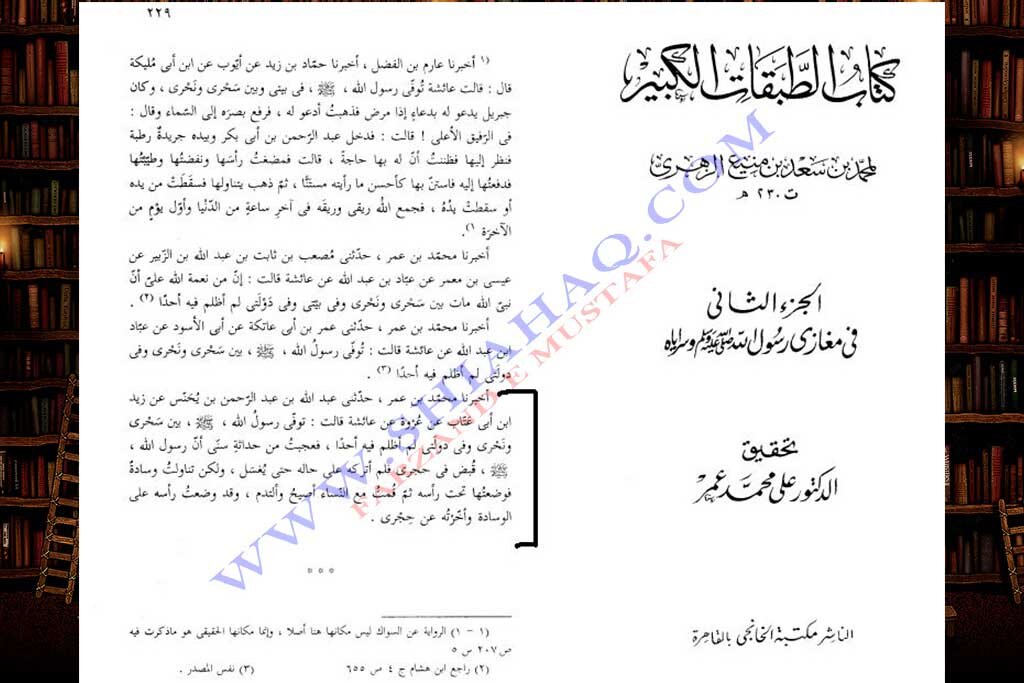 كتاب الطبقات الكبير
لمحمد بن سعد بن منيع الزهري
ت ٢٣٠ هـ
الجزء الثانى
فى مغازى رسول الله صلى الله عليه وسلم وسراياه
تحقيق
الدكتور على محمد عمر
الناشر مكتبة الخانجى بالقاهرة
٢٢٩
(١ أخبرنا عارم بن الفضل ، أخبرنا حمّاد بن زيد عن أيّوب عن ابن أبى مُليكة
قال : قالت عائشة تُوفّى رسول الله ، ﷺ ، فى بيتى وبين سَحْرى ونَحْرى ، وكان
جبريل يدعو له بدعاءٍ إذا مرض فذهبتُ أدعو له ، فرفع بصرَه إلى السّماء وقال :
فى الرّفيق الأعلى ! قالت : فدخل عبد الرّحمن بن أبى بكر وبيده جريدةٌ رطبة
فنظر إليها فظننتُ أنّ له بها حاجةً ، قالت فمضغتُ رأسَها ونفضتُها وطيّبتُها
فدفعتُها إليه فاستنّ بها كأحسن ما رأيته مستنًّا ، ثمّ ذهب يتناولها فسقَطَتْ من يده
أو سقطتْ يدُهُ ، فجمع اللهُ ريقى وريقَه فى آخرِ ساعةٍ من الدّنْيا وأوّل يوْمٍ من
الآخرَة ١).
أخبرنا محمّد بن عمر ، حدّثنى مُصعب بن ثابت بن عبد الله بن الزّبير عن
عيسى بن معمر عن عبّاد بن عبد الله عن عائشة قالت : إنّ من نعمة الله علىّ أنّ
نبىّ الله مات بين سَحْرى ونَحْرى وفى بيْتى وفى دَوْلَتى لم أظلم فيه أحدًا (٢) .
أخبرنا محمّد بن عمر ، حدّثنى عمر بن أبى عاتكة عن أبى الأسود عن عبّاد
ابن عبد الله عن عائشة قالت : تُوفّى رسولُ الله ، ﷺ ، بين سَحْرى ونَحْرى وفى
دولتى لم أظلم فيه أحدًا (٣) .
أخبرنا محمّد بن عمر ، حدّثنى عبد الله بن عبد الرّحمن بن يُحَنّس عن زيد
ابن أبى عَتّاب عن عُرْوة عن عائشة قالت : توفّى رسولُ الله ، ﷺ ، بين سَحْرى
ونَحْرى وفى دولتى لم أظلم فيه أحدًا ، فعجبتُ من حداثةِ سنّى أنّ رسول الله ،
ﷺ ، قُبض فى حجرى فلم أتركْه على حاله حتى يُغسَل ، ولكن تناولتُ وسادةً
فوضعتُها تحت رأسه ثمّ قُمتُ مع النّساء أصيحُ وألتدم ، وقد وضعتُ رأسه على
الوسادة وأخّرْتُه عن حِجْرى .
* * *
(١ – ١) الرواية عن السواك ليس مكانها هنا أصلا ، وإنما مكانها الحقيقى هو ماذكرت فيه
ص ٢٠٧ س ٥
(٢) راجع ابن هشام ج ٤ ص ٦٥٥ (٣) نفس المصدر .
WWW.SHIAHAQ.COM
FARZAND E MUSTAFA